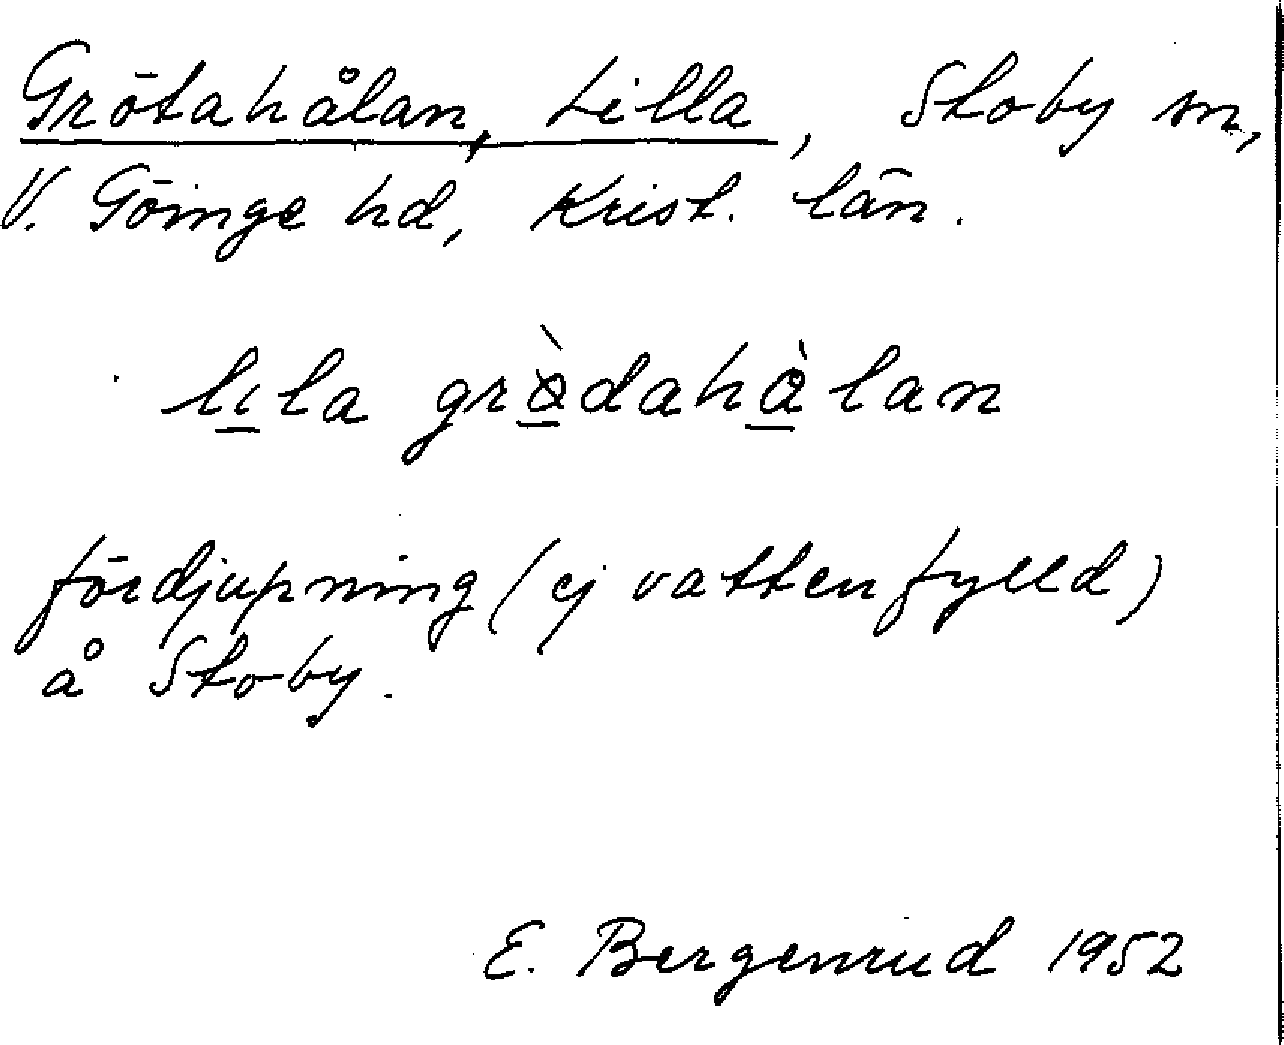 Grötahålan, Lilla, Stoby sn,
V. Göinge hd, Krist. län.
lıla grø̀dahὰlan
fördjupning (ej vattenfylld)
å Stoby.
E. Bergenrud 1952